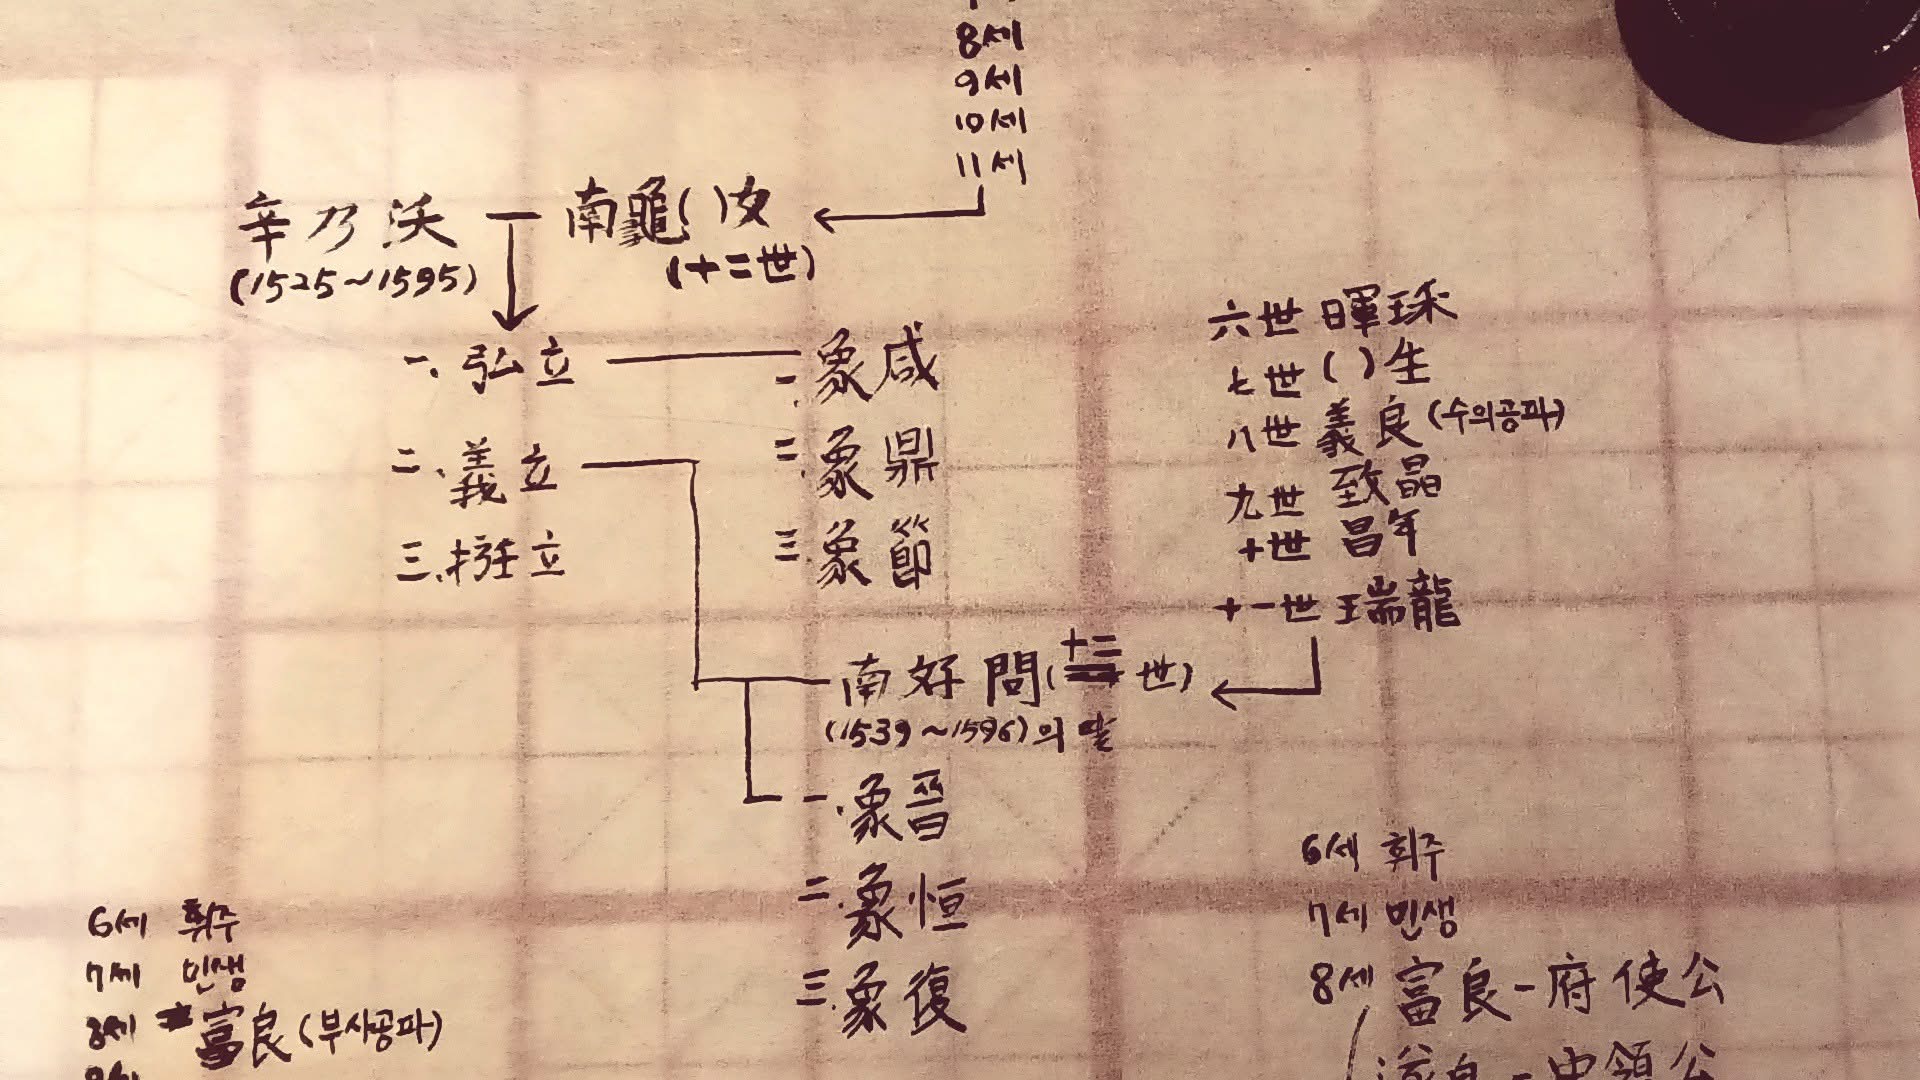 8세
9세
10세
11세
辛乃沃 南龜( )女
(1525~1595) (十二世)
一. 弘立
二. 義立
三. 立
一. 象咸
二. 象鼎
三. 象節
六世 暉珠
七世 ( )生
八世 義良 (수의공파)
九世 致晶
十世 昌年
十一世 瑞龍
南好問(十三 世)
(1539~1596)의 딸
一. 象晉
二. 象恒
三. 象復
6세 휘주
7세 민생
8세 富良 (부사공파)
9세
6세 휘주
7세 민생
8세 富良 - 府使公
良 - 中領公